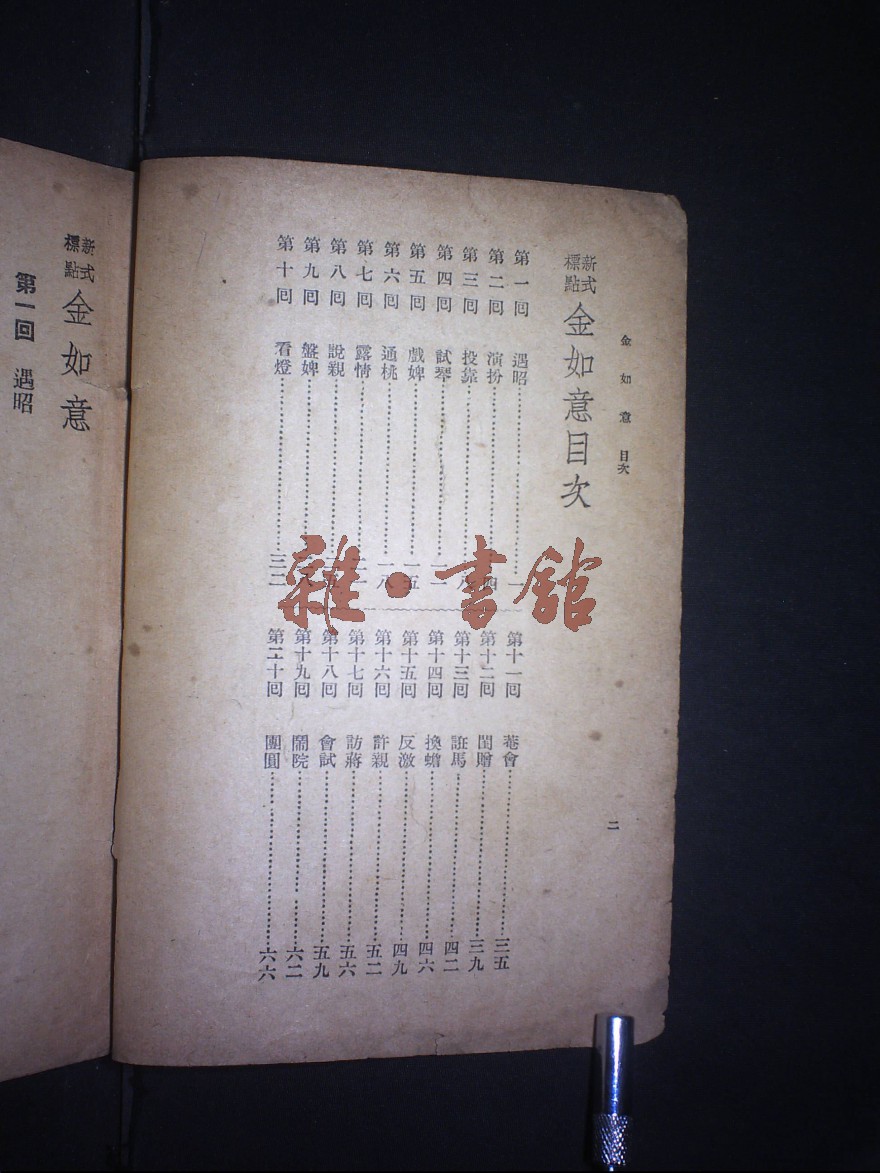 金如意 目次
二
新式標點 金如意目次
第一回 遇昭………一
第二回 演扮………四
第三回 投靠………八
第四回 試琴………一二
第五回 戲婢………一五
第六回 通桃………一八
第七回 露情………
第八回 說親………
第九回 盤婢………
第十回 看燈………三二
第十一回 菴會………三五
第十二回 閨贈………三九
第十三回 誑馬………四二
第十四回 換蟾………四六
第十五回 反激………四九
第十六回 許親………五二
第十七回 訪蔣………五六
第十八回 會試………五九
第十九回 鬧院………六二
第二十回 團圓………六六
新式標點 金如意
第一回 遇昭
雜·書館